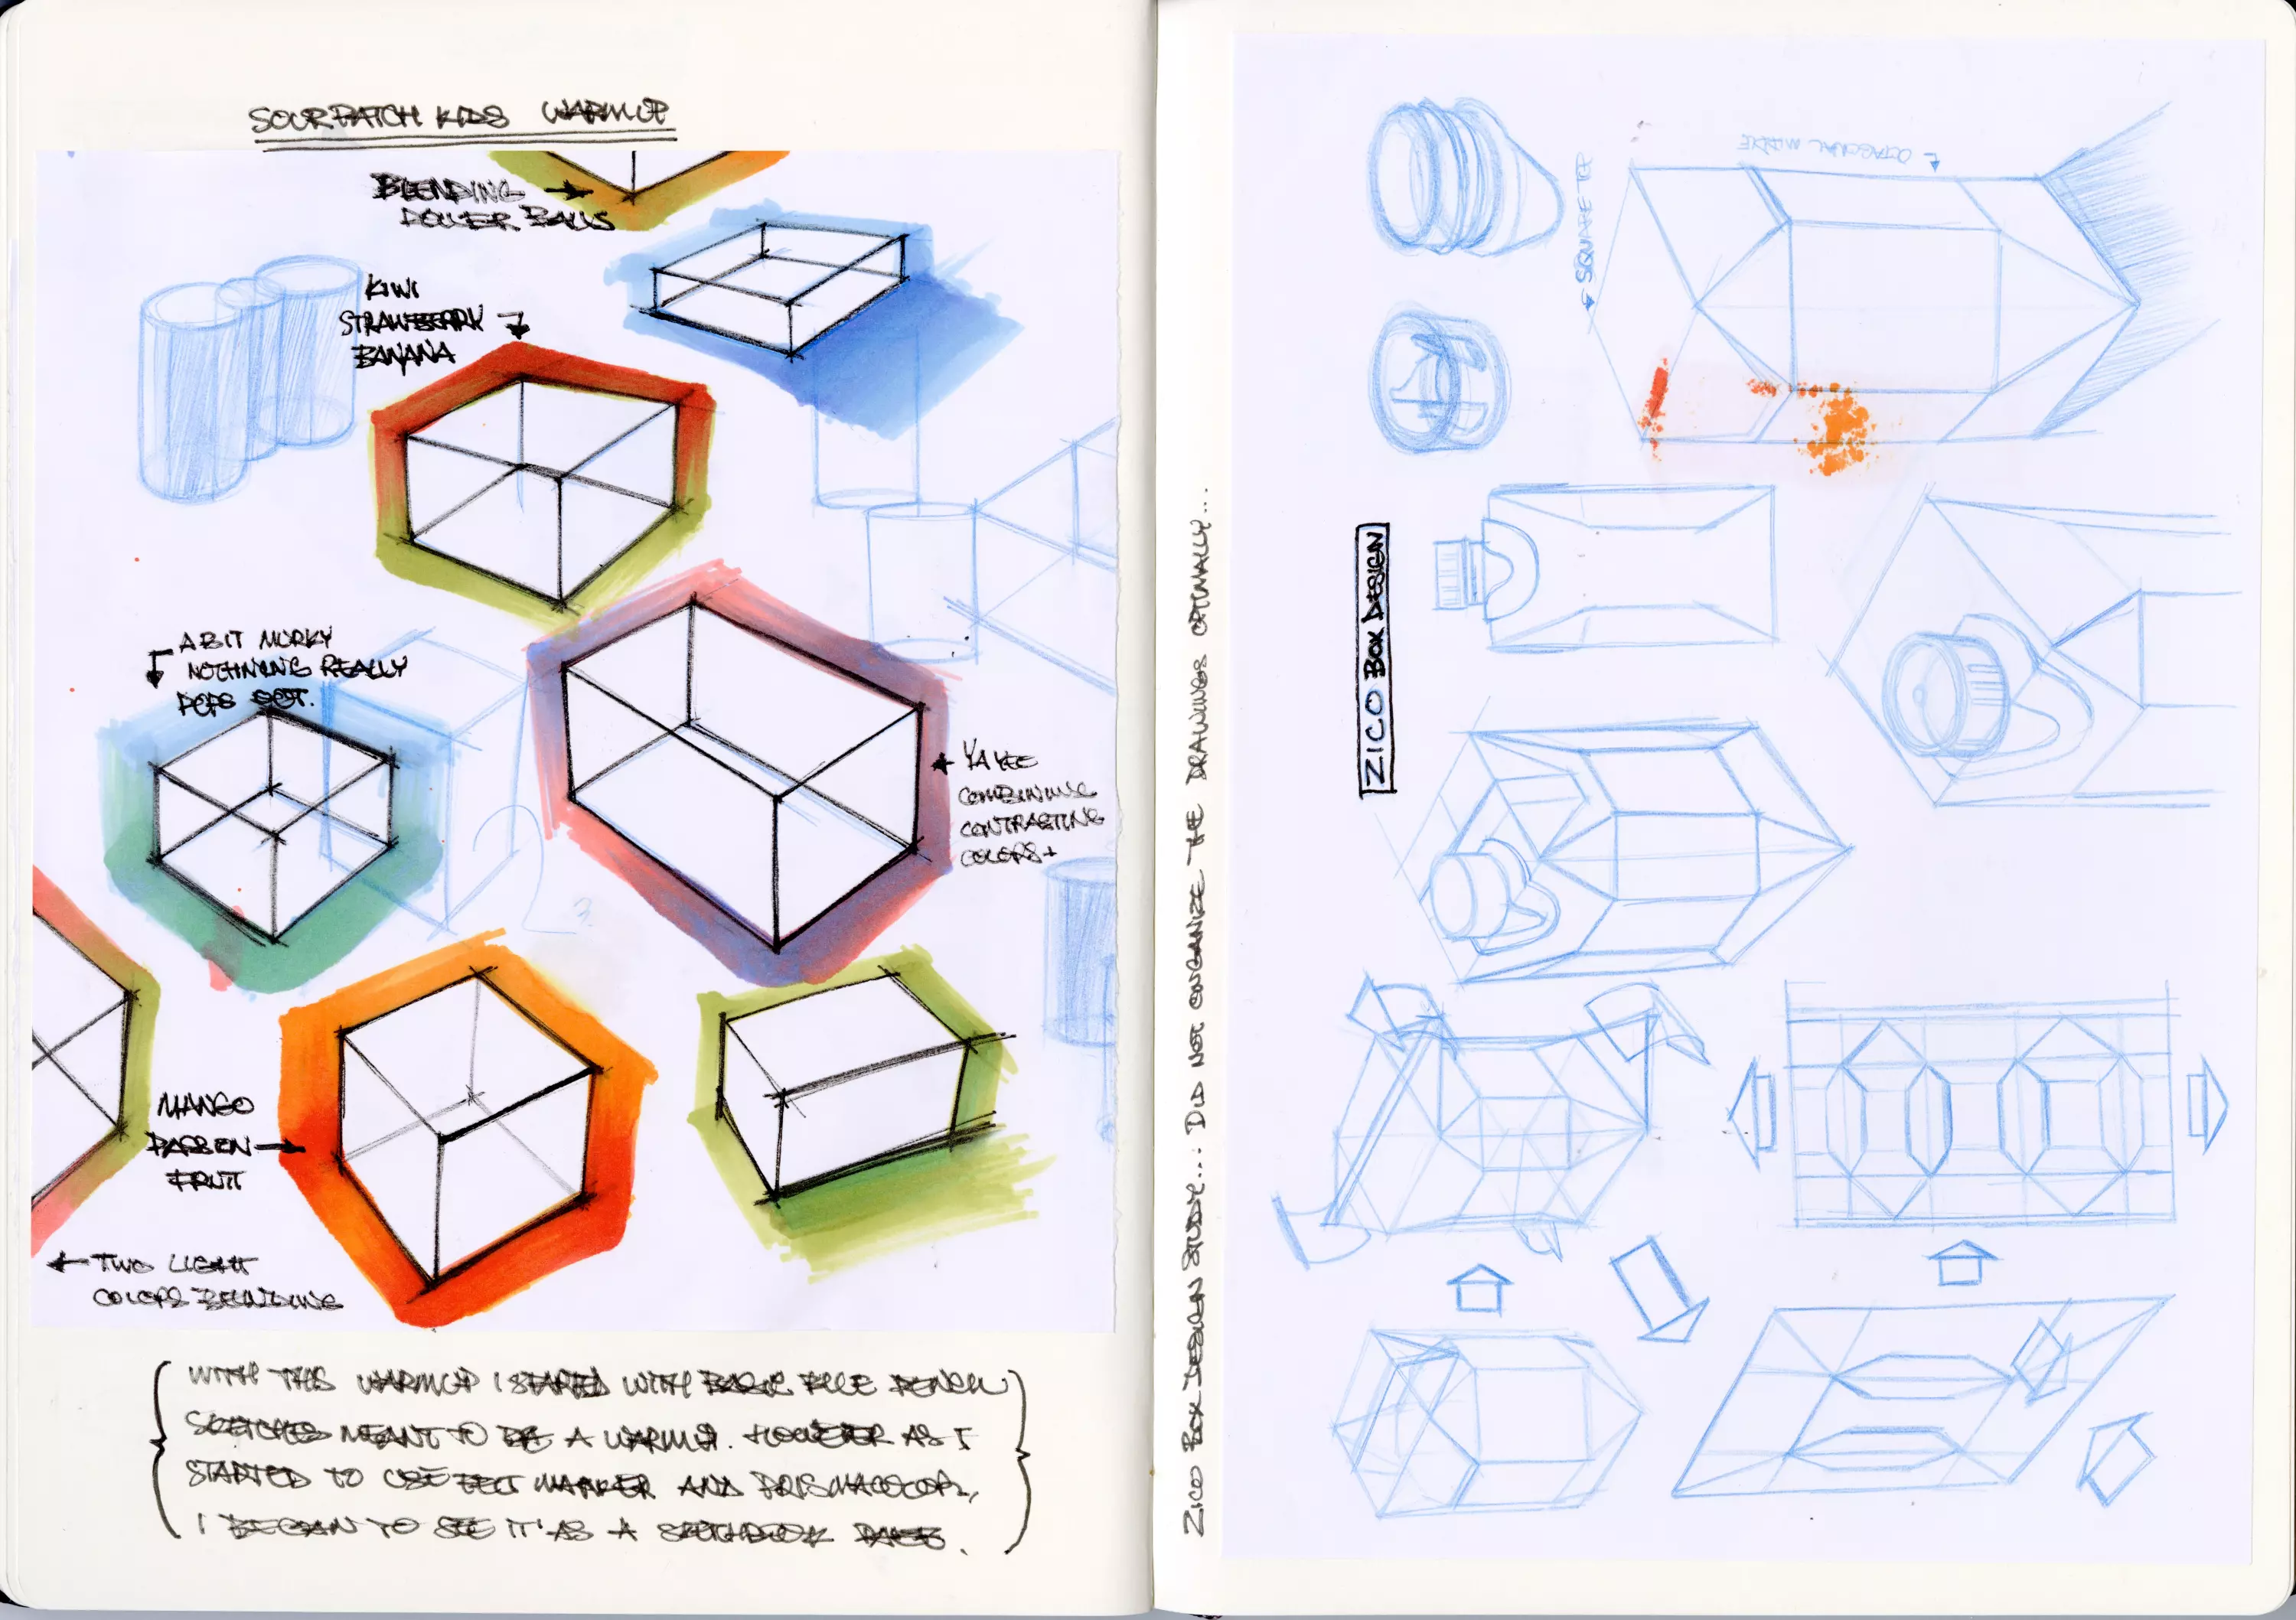 SOURPATCH KIDS WARMUP
BLENDING
ROLLER BALLS
KIWI
STRAWBERRY
BANANA
A BIT MURKY
NOTHINING REALLY
POPS OUT.
YAYEE
COMBINING
CONTRASTING
COLORS+
MANGO
PASSION
FRUIT
TWO LIGHT
COLORS BLENDING
WITH THIS WARMUP I STARTED WITH BASIC BLUE PENCIL
SKETCHES MEANT TO BE A WARMUP. HOWEVER AS I
STARTED TO USE FELT MARKER AND PRISMACOLOR,
I BEGAN TO SEE IT AS A SKETCHBOOK PAGE.
ZICO BOX DESIGN STUDY...: DID NOT ORGANIZE THE DRAWINGS OPTIMALLY...
ZICO BOX DESIGN
SQUARE TOP
OCTAGONAL MIDDLE